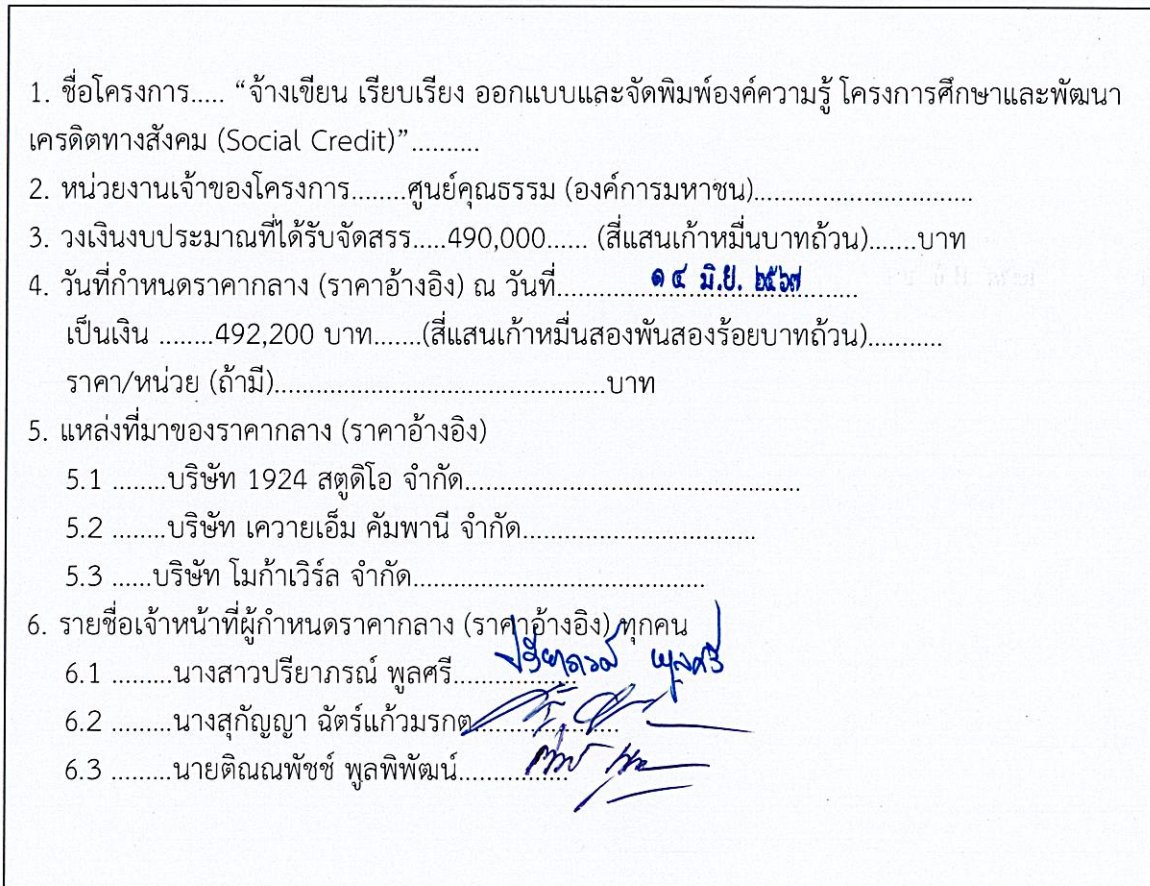 1. ชื่อโครงการ..... “จ้างเขียน เรียบเรียง ออกแบบและจัดพิมพ์องค์ความรู้ โครงการศึกษาและพัฒนา
เครดิตทางสังคม (Social Credit)”..........
2. หน่วยงานเจ้าของโครงการ........ศูนย์คุณธรรม (องค์การมหาชน)................................
3. วงเงินงบประมาณที่ได้รับจัดสรร.....490,000...... (สี่แสนเก้าหมื่นบาทถ้วน).......บาท
4. วันที่กำหนดราคากลาง (ราคาอ้างอิง) ณ วันที่............๑๔ มิ.ย. ๒๕๖๗............
เป็นเงิน ........492,200 บาท.......(สี่แสนเก้าหมื่นสองพันสองร้อยบาทถ้วน)...........
ราคา/หน่วย (ถ้ามี)................................................บาท
5. แหล่งที่มาของราคากลาง (ราคาอ้างอิง)
5.1 ........บริษัท 1924 สตูดิโอ จำกัด.................................................
5.2 ........บริษัท เควายเอ็ม คัมพานี จำกัด..................................
5.3 ......บริษัท โมก้าเวิร์ล จำกัด...........................................
6. รายชื่อเจ้าหน้าที่ผู้กำหนดราคากลาง (ราคาอ้างอิง) ทุกคน
6.1 .........นางสาวปรียาภรณ์ พูลศรี.................. ปรียาภรณ์ พูลศรี
6.2 .........นางสุกัญญา ฉัตร์แก้วมรกต.....................
6.3 .........นายติณณพัชช์ พูลพิพัฒน์................